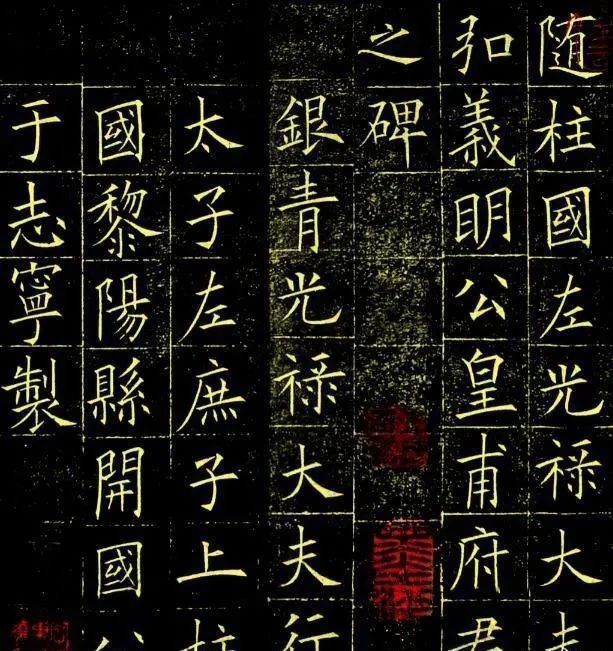 随柱國左光禄大夫
弘義明公皇甫府君
之碑
銀青光禄大夫行
太子左庶子上柱
國黎陽縣開國公
于志寧製